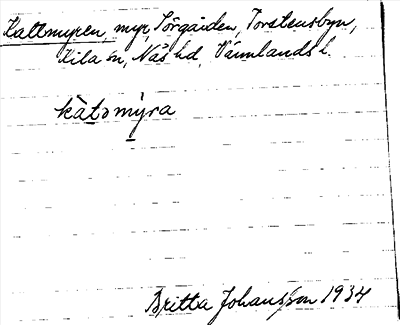 Kattmyren, myr, Sörgården, Torstensbyn,
Kila sn, Näs hd, Värmlands l.
kàtəmy̆ra
Britta Johansson 1934